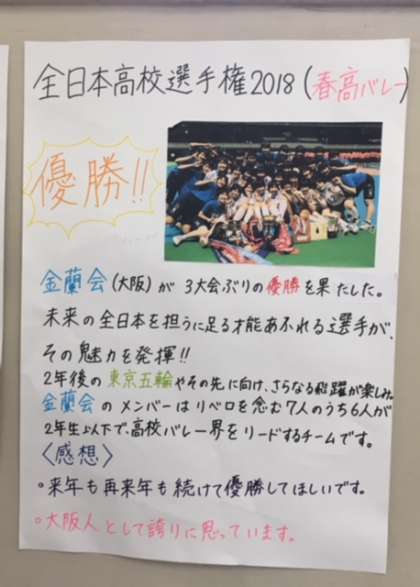 全日本高校選手権2018(春高バレー)
優勝!!
金蘭会(大阪)が 3大会ぶりの優勝を果たした。
未来の全日本を担うに足る才能あふれる選手が、
その魅力を発揮!!
2年後の東京五輪やその先に向け、さらなる飛躍が楽しみ。
金蘭会のメンバーはリベロを含む7人のうち6人が
2年生以下で、高校バレー界をリードするチームです。
〈感想〉
○来年も再来年も続けて優勝してほしいです。
○大阪人として誇りに思っています。